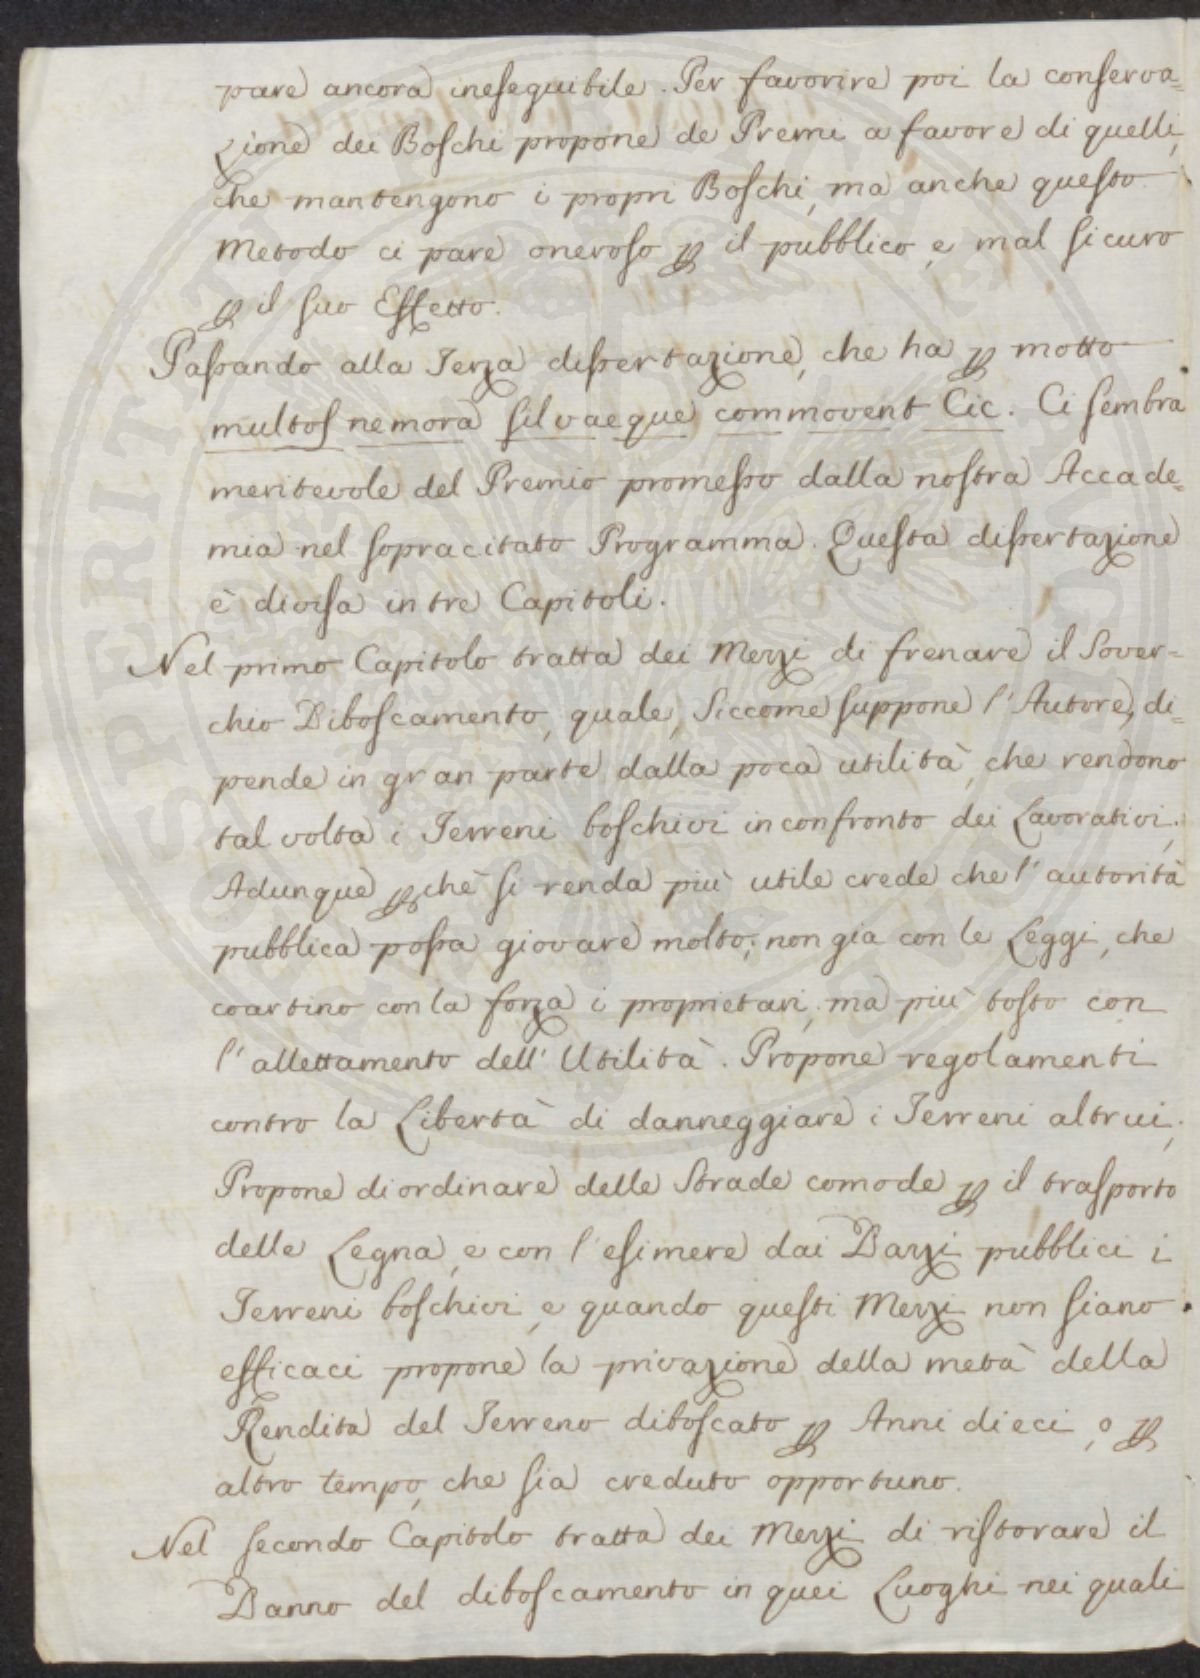 pare ancora ineseguibile. Per favorire poi la conserva=
zione dei Boschi propone de Premi a favore di quelli,
che mantengono i propri Boschi, ma anche questo
Metodo ci pare oneroso p il pubblico, e mal sicuro
p il suo Effetto.
Passando alla Terza dissertazione, che ha p motto
multos nemora silvaeque commovent Cic. Ci sembra
meritevole del Premio promesso dalla nostra Accade=
mia nel sopracitato Programma. Questa dissertazione
è divisa in tre Capitoli.
Nel primo Capitolo tratta dei Mezzi di frenare il Sover=
chio Diboscamento, quale, Siccome suppone l'Autore, di=
pende in gran parte dalla poca utilità, che rendono
tal volta i Terreni boschivi in confronto dei Lavorativi;
Adunque pchè si renda più utile crede che l'autorità
pubblica possa giovare molto; non gia con le Leggi, che
coartino con la forza i proprietari, ma più tosto con
l'allettamento dell'Utilità. Propone regolamenti
contro la Libertà di danneggiare i Terreni altrui;
Propone di ordinare delle Strade comode p il trasporto
delle Legna, e con l'esimere dai Dazzi pubblici i
Terreni boschivi, e quando questi Mezzi non siano
efficaci propone la privazione della metà della
Rendita del Terreno diboscato p Anni dieci, o p
altro tempo, che sia creduto opportuno.
Nel secondo Capitolo tratta dei Mezzi di ristorare il
Danno del diboscamento in quei Luoghi nei quali